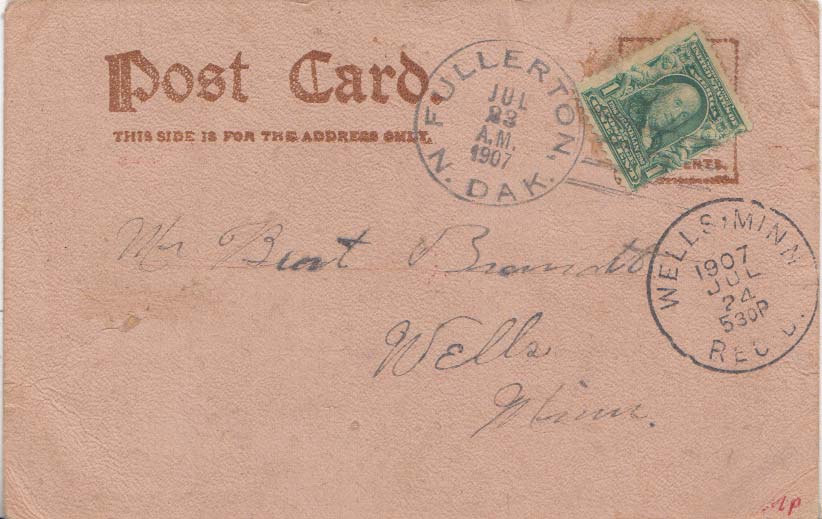 Post Card.
THIS SIDE IS FOR THE ADDRESS ONLY.
FULLERTON, N. DAK.
JUL
23
A.M.
1907
1
WELLS, MINN
1907
JUL
24
530P
REC'D.
Mr Burt Brandt
Wells
Minn.